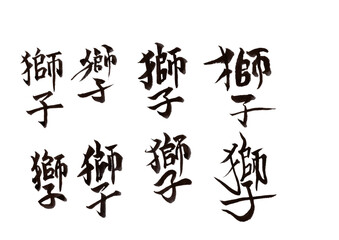 獅子 獅子 獅子 獅子
獅子 獅子 獅子 獅子